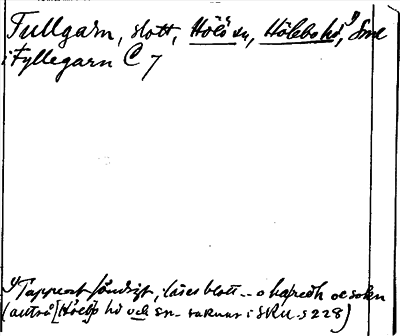 Tullgarn, slott, Hölö sn, Hölebo hd, 1) Srml
i Fyllegarn C 7
1) Tappert läses blott -- o hæredh oc sokn
(alltså [Hölebo hd och sn- saknas i SRU s 228)